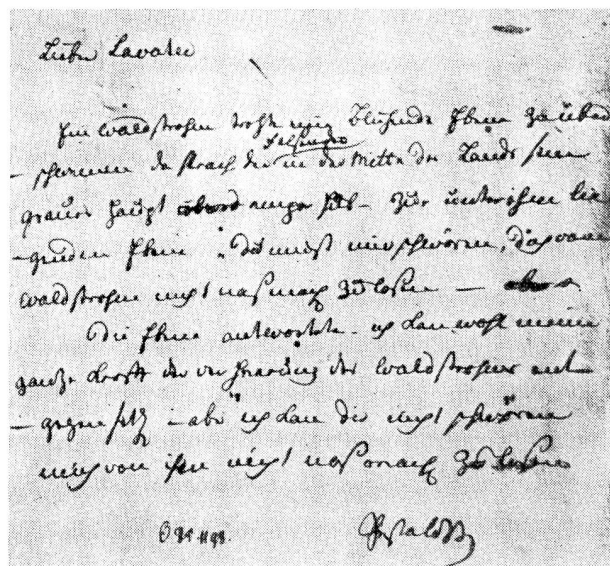 Lieber Lavater
Ein Waldstrohm drohte eine blühende Ebene zu über
-schwemmen da sprach der Felsen der in der Mitte des Lands sein
graues Haupt empor hub - zur unter ihm lie
-genden Ebene, du must mir schwören, dich vom
Waldstrohm nicht naß mach zu lasen —
Die Ebene antwortete - ich kan wohl meine
ganze Krefte der des Waldstrohms ent
-gegen setz - aber ich kan dir nicht schwören
mich von ihm nicht naß mach zu lasen
Pestalozzi